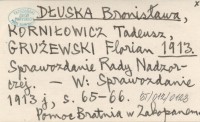 DŁUSKA Bronisława,
KORNIŁOWICZ Tadeusz,
GRUŻEWSKI Florian 1913.
Sprawozdanie Rady Nadzor-
czej. — W: Sprawozdanie
1913 j, s. 65-66.
Pomoc Bratnia w Zakopanem